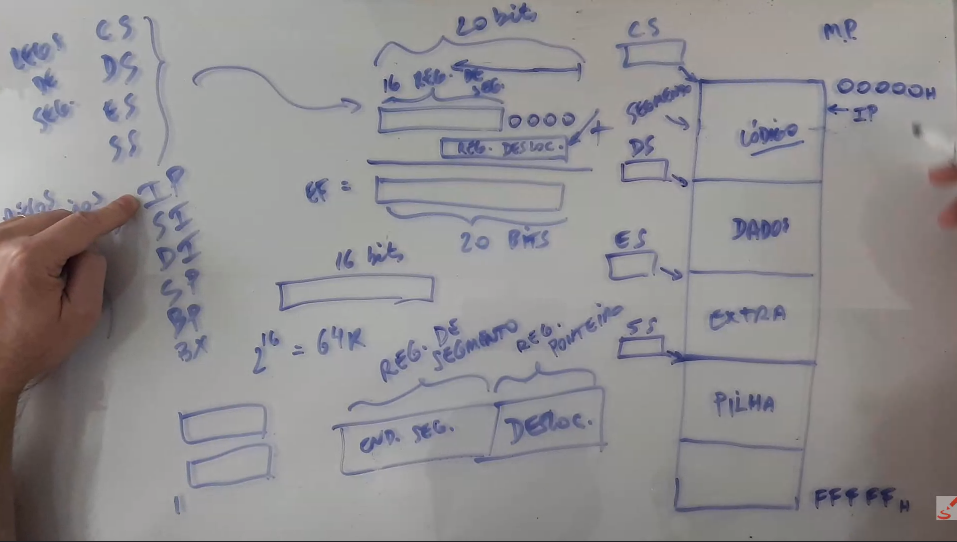 REGS
DE
SEG.
CS
DS
ES
SS
IP
SI
DI
SP
BP
BX
20 bits
16 REG. DE SEG.
0000
+
REG. DESLOC.
EF =
20 BITS
16 bits
2^16 = 64K
REG. DE SEGMENTO
REG. PONTEIRO
END. SEG.
DESLOC.
CS
SEGMENTO
DS
ES
SS
M.P.
00000H
IP
CÓDIGO
DADOS
EXTRA
PILHA
FFFFFH